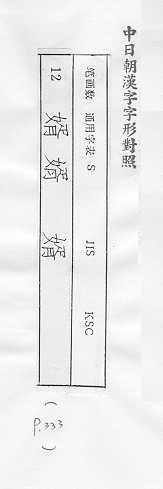 中日朝漢字字形對照
笔画数 通用字表 S JIS KSC
12 婿 婿 婿
(P.333)